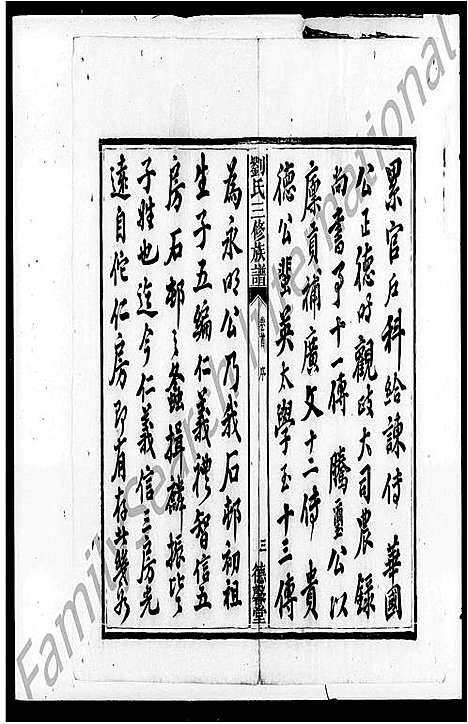 累官户科給諫侍 華國
公正德时觀政大司農錄
尚書事十一傳 騰璽公以
廪貢補廣文十二傳 貴
德公蜚英太學至十三傳
劉氏三修族譜 卷首 序 三 德馨堂
為永明公乃我石邨初祖
生子五編仁義禮智信五
房石邨之螽揖麟振皆
子姓也迄今仁義信三房光
遠自佗仁房即有存此幾
Family Search Intel national